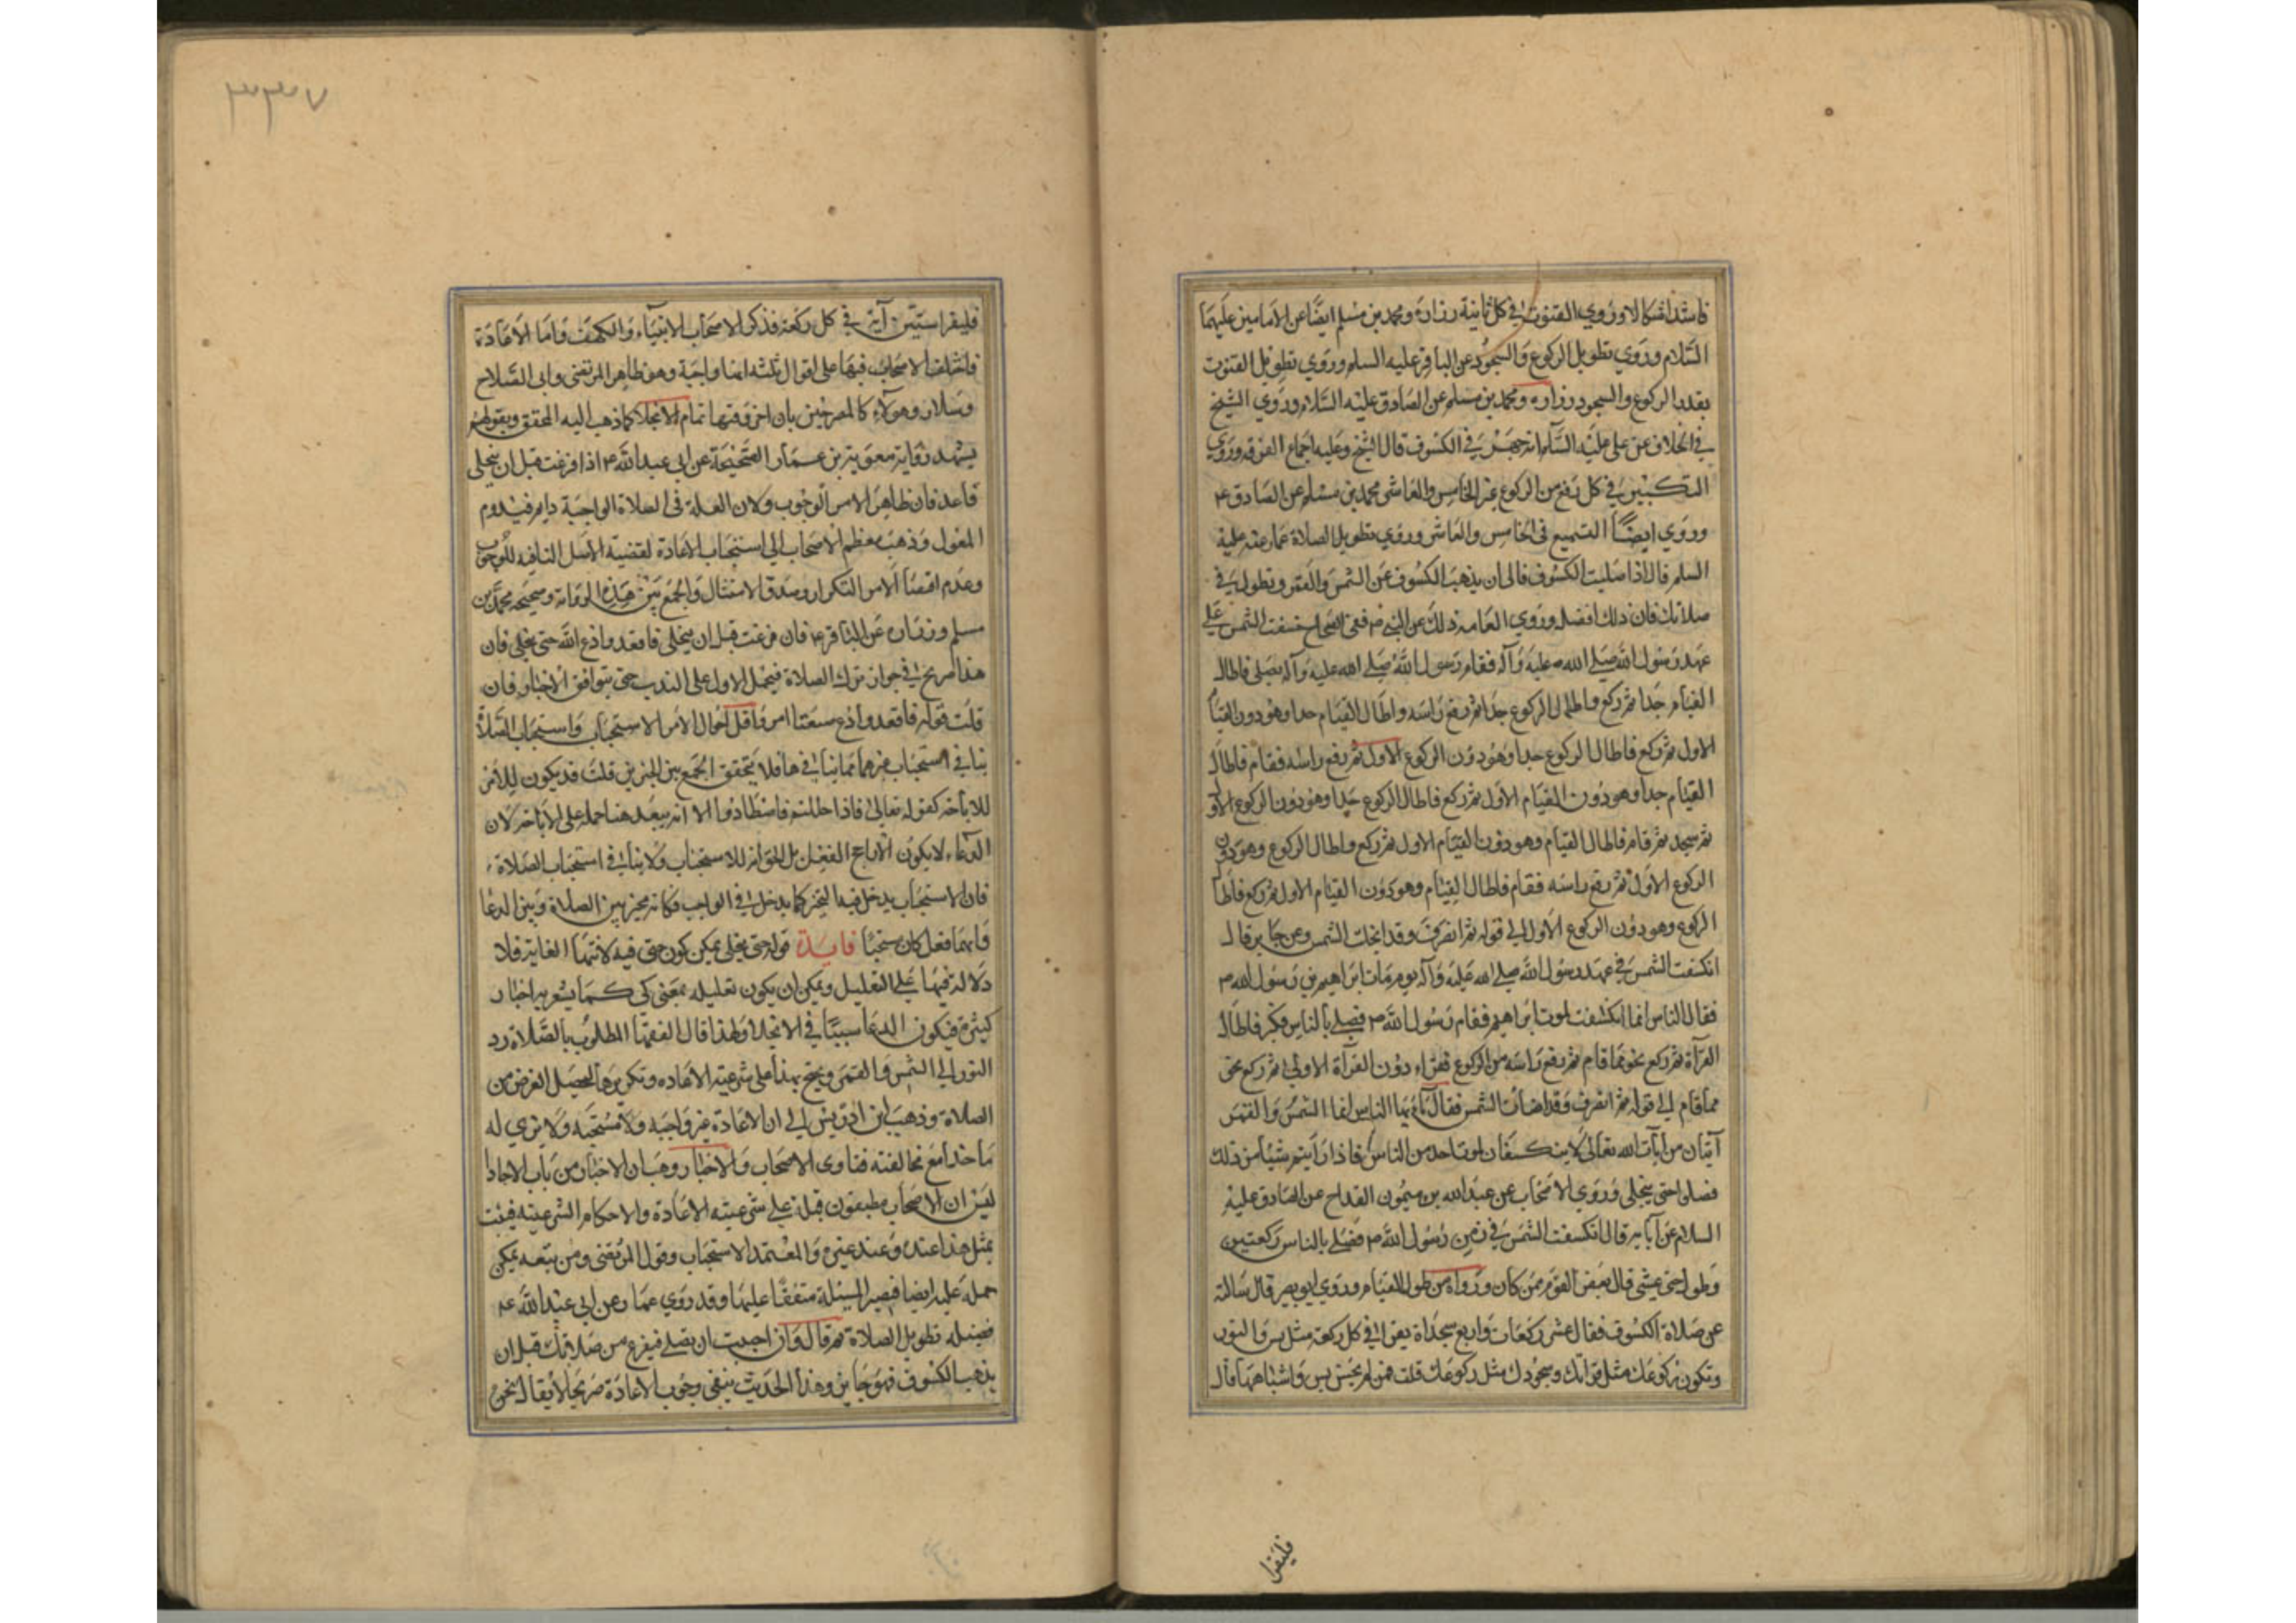 فاستدافسكالا وروي القنوت في كل ثانية زرارة ومحمد بن مسلم ايضا عن الامامين عليهما
السلام وروي تطويل الركوع والسجود عن الباقر عليه السلم وروي تطويل القنوت
بقدر الركوع والسجود زراره ومحمد بن مسلم عن الصادق عليه السلام وروي الشيخ
في الخلاف عن علي عليه السلم انه جهر في الكسوف قال الشيخ وعليه اجماع الفرقه وروي
التكبير في كل رفع من الركوع غير الخامس والعاشر محمد بن مسلم عن الصادق ع
وروي ايضا التسميع في الخامس والعاشر وروي تطويل الصلاة عمار عنه عليه
السلم قال اذا صليت الكسوف فالى ان يذهب الكسوف عن الشمس والقمر وتطول في
صلاتك فان ذلك افضل وروي العامه ذلك عن النبي ص ففي الصحاح خسفت الشمس علي
عهد رسول الله صلي الله عليه وآله فقام رسول الله صلي الله عليه وآله يصلي فاطال
القيام جدا ثم ركع واطال الركوع جدا ثم رفع راسه واطال القيام جدا وهو دون القيام
الاول ثم ركع فاطال الركوع جدا وهو دون الركوع الاول ثم رفع راسه فقام فاطال
القيام جدا وهو دون القيام الاول ثم ركع فاطال الركوع جدا وهو دون الركوع الاول
ثم سجد ثم قام فاطال القيام وهو دون القيام الاول ثم ركع واطال الركوع وهو دون
الركوع الاول ثم رفع راسه فقام فاطال القيام وهو دون القيام الاول ثم ركع فاطال
الركوع وهو دون الركوع الاول الي قوله ثم انصرف وقد انجلت الشمس وعن جابر قال
انكسفت الشمس في عهد رسول الله صلي الله عليه وآله يوم مات ابراهيم بن رسول الله ص
فقال الناس انما انكسفت لموت ابراهيم فقام رسول الله ص فصلي بالناس فكبر فاطال
القرآة ثم ركع نحوا مما قام ثم رفع راسه من الركوع فقراء دون القرآة الاولي ثم ركع نحو
مما قام الي قوله ثم انصرف وقد اضات الشمس فقال يا ايها الناس انما الشمس والقمر
آيتان من آيات الله تعالى لا ينكسفان لموت احد من الناس فاذا رايتم شيئا من ذلك
فصلوا حتى ينجلي وروي الاصحاب عن عبدالله بن ميمون القداح عن الصادق عليه
السلام عن آبائه قال انكسفت الشمس في زمن رسول الله ص فصلي بالناس ركعتين
وطول حتى غشي قال بعض القوم ممن كان وراه من طول القيام وروي ابو بصير قال سالته
عن صلاة الكسوف فقال عشر ركعات واربع سجداة يقرا في كل ركعة مثل يس والنور
وتكون ركوعك مثل قرائتك وسجودك مثل ركوعك قلت فمن لم يحسن يس واشباهها قال
فليقرا
٣٣٧
فليقرا ستين آية في كل ركعة فذكر الاصحاب الانبياء والكهف واما الاعادة
فاختلف الاصحاب فيها على اقوال ثلثه انها واجبة وهو ظاهر المرتضى وابي الصلاح
وسلار وهولاء كالمصرحين بان اخر وقتها تمام الانجلا كما ذهب اليه المحقق وبقولهم
يشهد رواية معوية بن عمار الصحيحة عن ابي عبدالله ع اذا فرغت قبل ان ينجلي
فاعد فان ظاهر الامر الوجوب ولان العلة في الصلاة الواجبة دايم فيدوم
المعلول وذهب معظم الاصحاب الي استحباب الاعادة لقضية الاصل النافيه للوجوب
وعدم اقتضا الامر التكرار وصدق الامتثال والجمع بين هذه الرواية وصحيحه محمد بن
مسلم وزراره عن الباقر ع فان فرغت قبل ان ينجلي فاقعد وادع الله حتى ينجلي فان
هذا صريح في جواز ترك الصلاة فيحمل الاول على الندب حتى يتوافق الاخبار فان
قلت قوله فاقعد وادع صيغتا امر واقل احوال الامر الاستحباب واستحباب الصلاة
ينافي استحباب غيرهما مما ينافيها فلا يتحقق الجمع بين الخبرين قلت قد يكون للامر
للاباحة كقوله تعالى فاذا حللتم فاصطادوا الا انه يبعد هنا حمله على الاباحة لان
الدعاء لا يكون الا راجح الفعل بل الجواب انه للاستحباب ولا ينافي استحباب الصلاة
فان الاستحباب يدخل فيه التخير كما يدخل في الواجب فكانه مخير بين الصلاة وبين الدعا
وايهما فعل كان مستحبا فايدة قوله حتى ينجلي يمكن كون حتى فيه لانتها الغاية فلا
دلالة فيها علي التعليل ويمكن ان يكون تعليله بمعنى كي كما يشعر به اخبار
كثيرة فيكون الدعا سببا في الانجلا ولهذا قال الفقها المطلوب بالصلاة رد
النور الي الشمس والقمر ويحتج بهذا على شرعيته الاعاده وتكريرها لتحصيل الغرض من
الصلاة وذهب ابن ادريس الي ان الاعادة غير واجبه ولا مستحبه ولا نري له
ماخذا مع مخالفته فتاوى الاصحاب والاخبار وهب ان الاخبار من باب الاحاد
ليس ان الاصحاب مطبقون قبله على شرعيته الاعادة والاحكام الشرعية فيثبت
بمثل هذا عنده وعند غيره والمعتمد الاستحباب وقول المرتضى ومن تبعه يمكن
حمله عليه ايضا فيصير المسئلة متفقا عليها وقد روي عمار عن ابي عبدالله ع
فضيله تطويل الصلاة ثم قال وان احببت ان تصلي فيفرغ من صلاتك قبل ان
يذهب الكسوف فهو جايز وهذا الحديث ينفي وجوب الاعادة صريحا لا يقال نحن